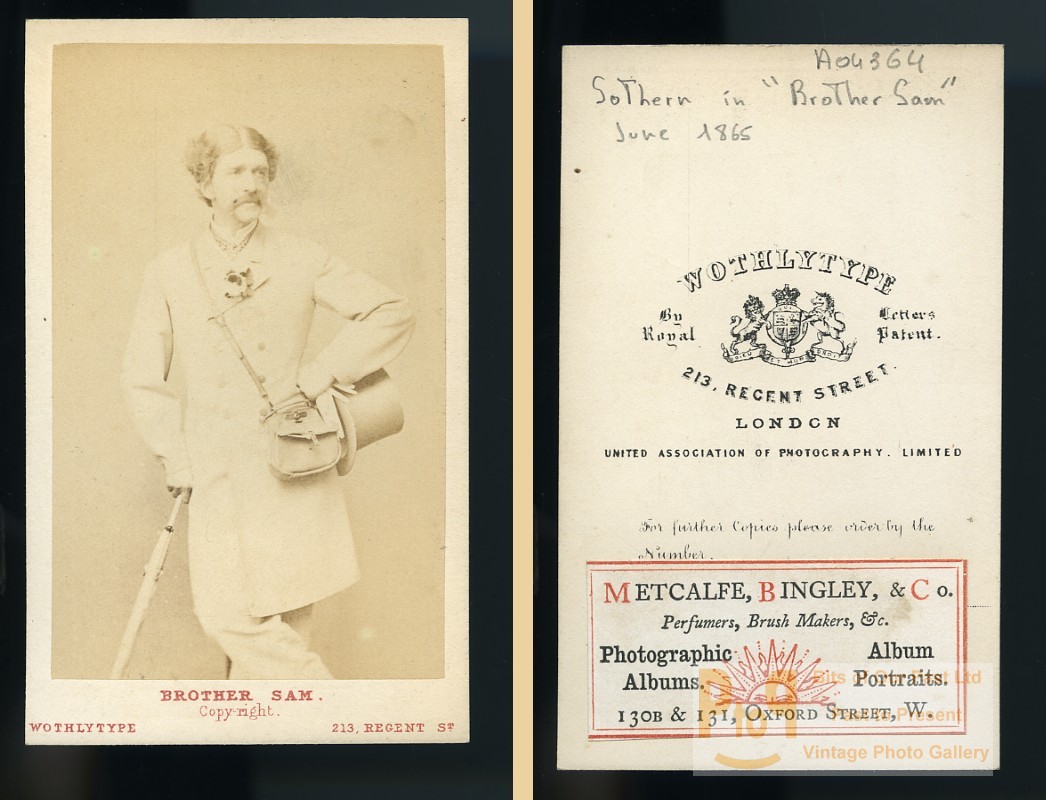 BROTHER SAM.
Copyright.
WOTHLYTYPE 213, REGENT ST
A04364
Sothern in "Brother Sam"
June 1865
WOTHLYTYPE
By Royal Letters Patent.
213, REGENT STREET.
LONDON
UNITED ASSOCIATION OF PHOTOGRAPHY. LIMITED
For further Copies please order by the
Number.
METCALFE, BINGLEY, & Co.
Perfumers, Brush Makers, &c.
Photographic Albums.
Album Portraits.
130B & 131, OXFORD STREET, W.
Vintage Photo Gallery